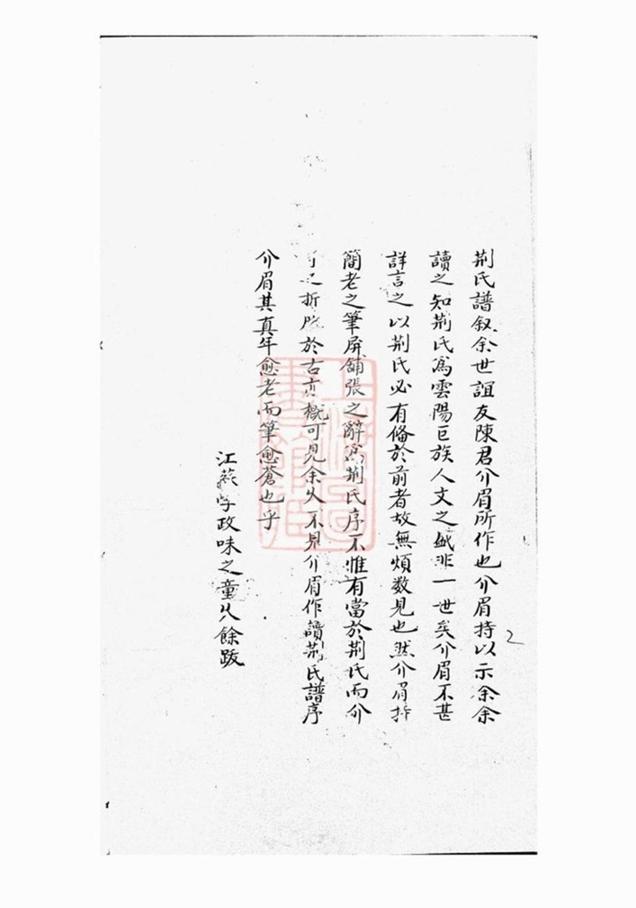 荆氏譜叙余世誼友陳君介眉所作也介眉持以示余余
讀之知荆氏爲雲陽巨族人文之盛非一世矣介眉不甚
詳言之以荆氏必有俻於前者故無煩数見也然介眉
簡老之筆屏鋪張之辭爲荆氏序不惟有當於荆氏而介
之折於古亦概可見余久不見介眉作讀荆氏譜序
介眉其真年愈老而筆愈蒼也乎
江蘇學政味之童八餘跋